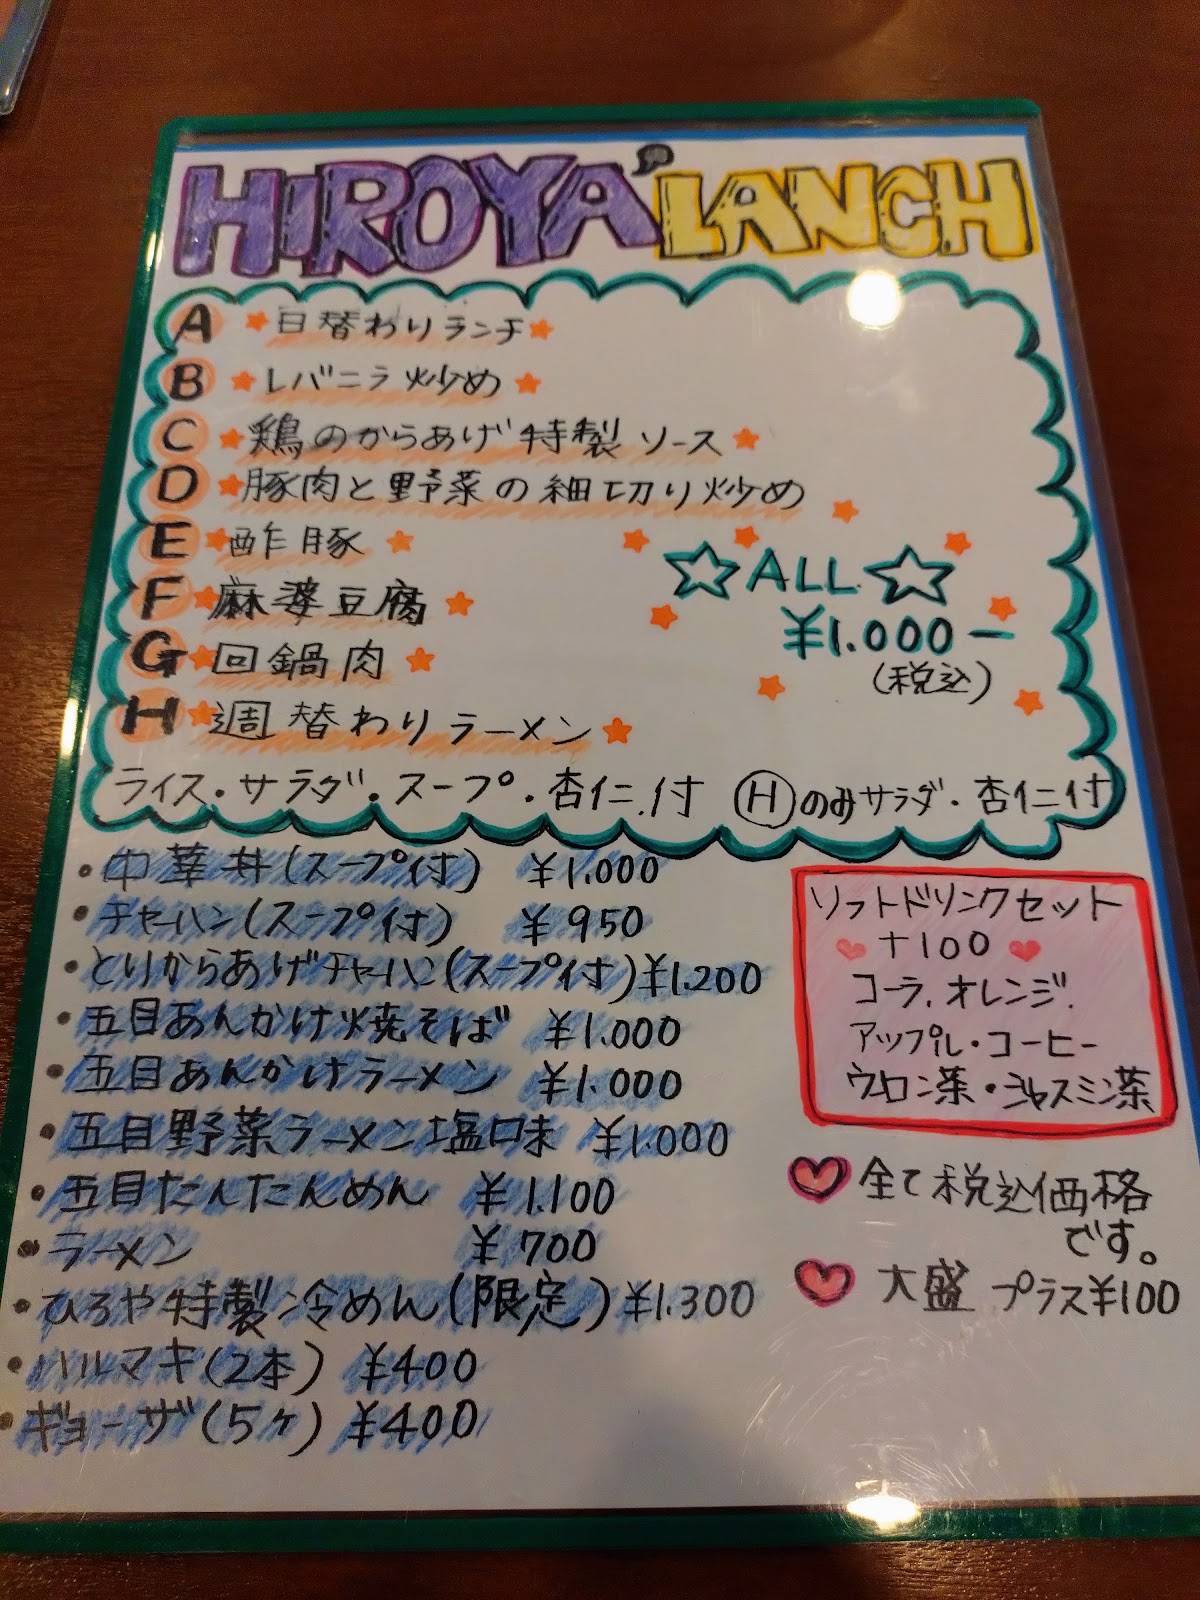 HIROYA'LANCH
A ★日替わりランチ★
B ★レバニラ炒め★
C ★鶏のからあげ特製ソース★
D ★豚肉と野菜の細切り炒め
E ★酢豚★
F ★麻婆豆腐★
G ★回鍋肉★
H ★週替わりラーメン★
☆ALL☆
¥1.000ー
(税込)
ライス・サラダ・スープ・杏仁付 Ⓗのみサラダ・杏仁付
・中華丼(スープ付) ¥1.000
・チャーハン(スープ付) ¥950
・とりからあげチャーハン(スープ付) ¥1.200
・五目あんかけ焼そば ¥1.000
・五目あんかけラーメン ¥1.000
・五目野菜ラーメン塩味 ¥1.000
・五目たんたんめん ¥1.100
・ラーメン ¥700
・ひろや特製冷めん(限定) ¥1.300
・ハルマキ(2本) ¥400
・ギョーザ(5ヶ) ¥400
ソフトドリンクセット
♥ +100 ♥
コーラ.オレンジ.
アップル・コーヒー
ウーロン茶・ジャスミン茶
♥全て税込価格
です。
♥大盛 プラス¥100